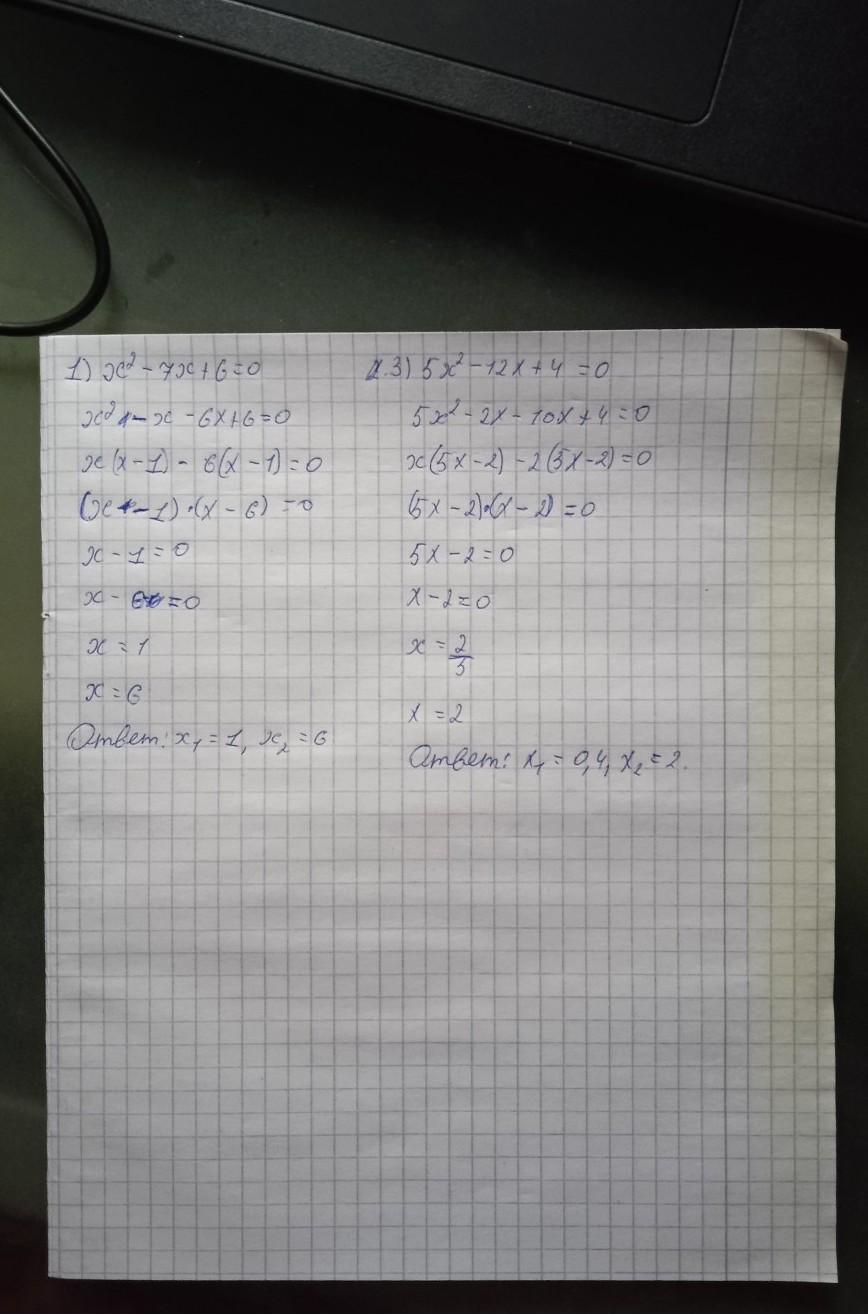 1) x² - 7x + 6 = 0
x² - x - 6x + 6 = 0
x(x - 1) - 6(x - 1) = 0
(x - 1)·(x - 6) = 0
x - 1 = 0
x - 6 = 0
x = 1
x = 6
Ответ: x₁ = 1, x₂ = 6
3) 5x² - 12x + 4 = 0
5x² - 2x - 10x + 4 = 0
x(5x - 2) - 2(5x - 2) = 0
(5x - 2)·(x - 2) = 0
5x - 2 = 0
x - 2 = 0
x = 2/5
x = 2
Ответ: x₁ = 0,4, x₂ = 2.